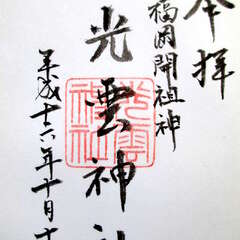 奉拝
福岡開祖神
光雲神社
平成十六年十月十
光雲神社